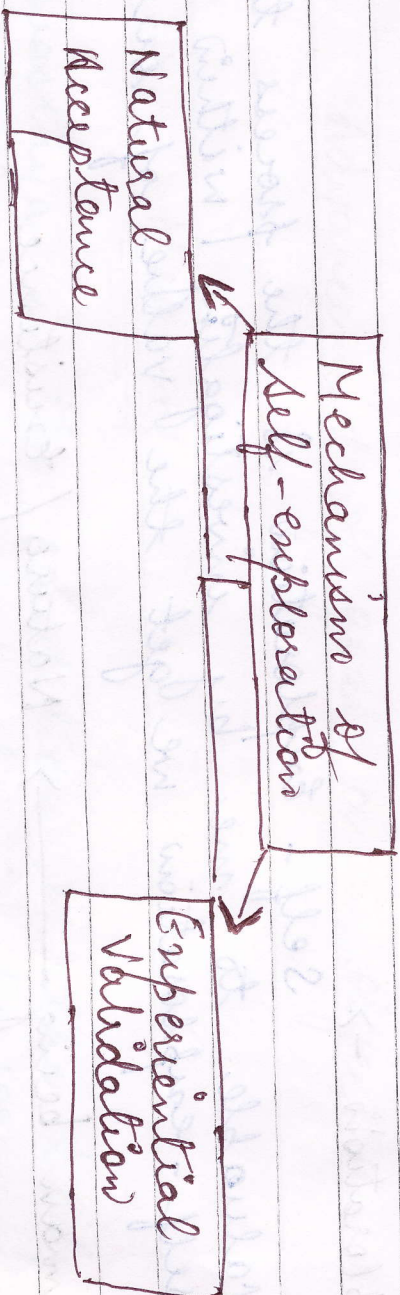 Mechanism of
self-exploration
Natural
Acceptance
Experiential
validation